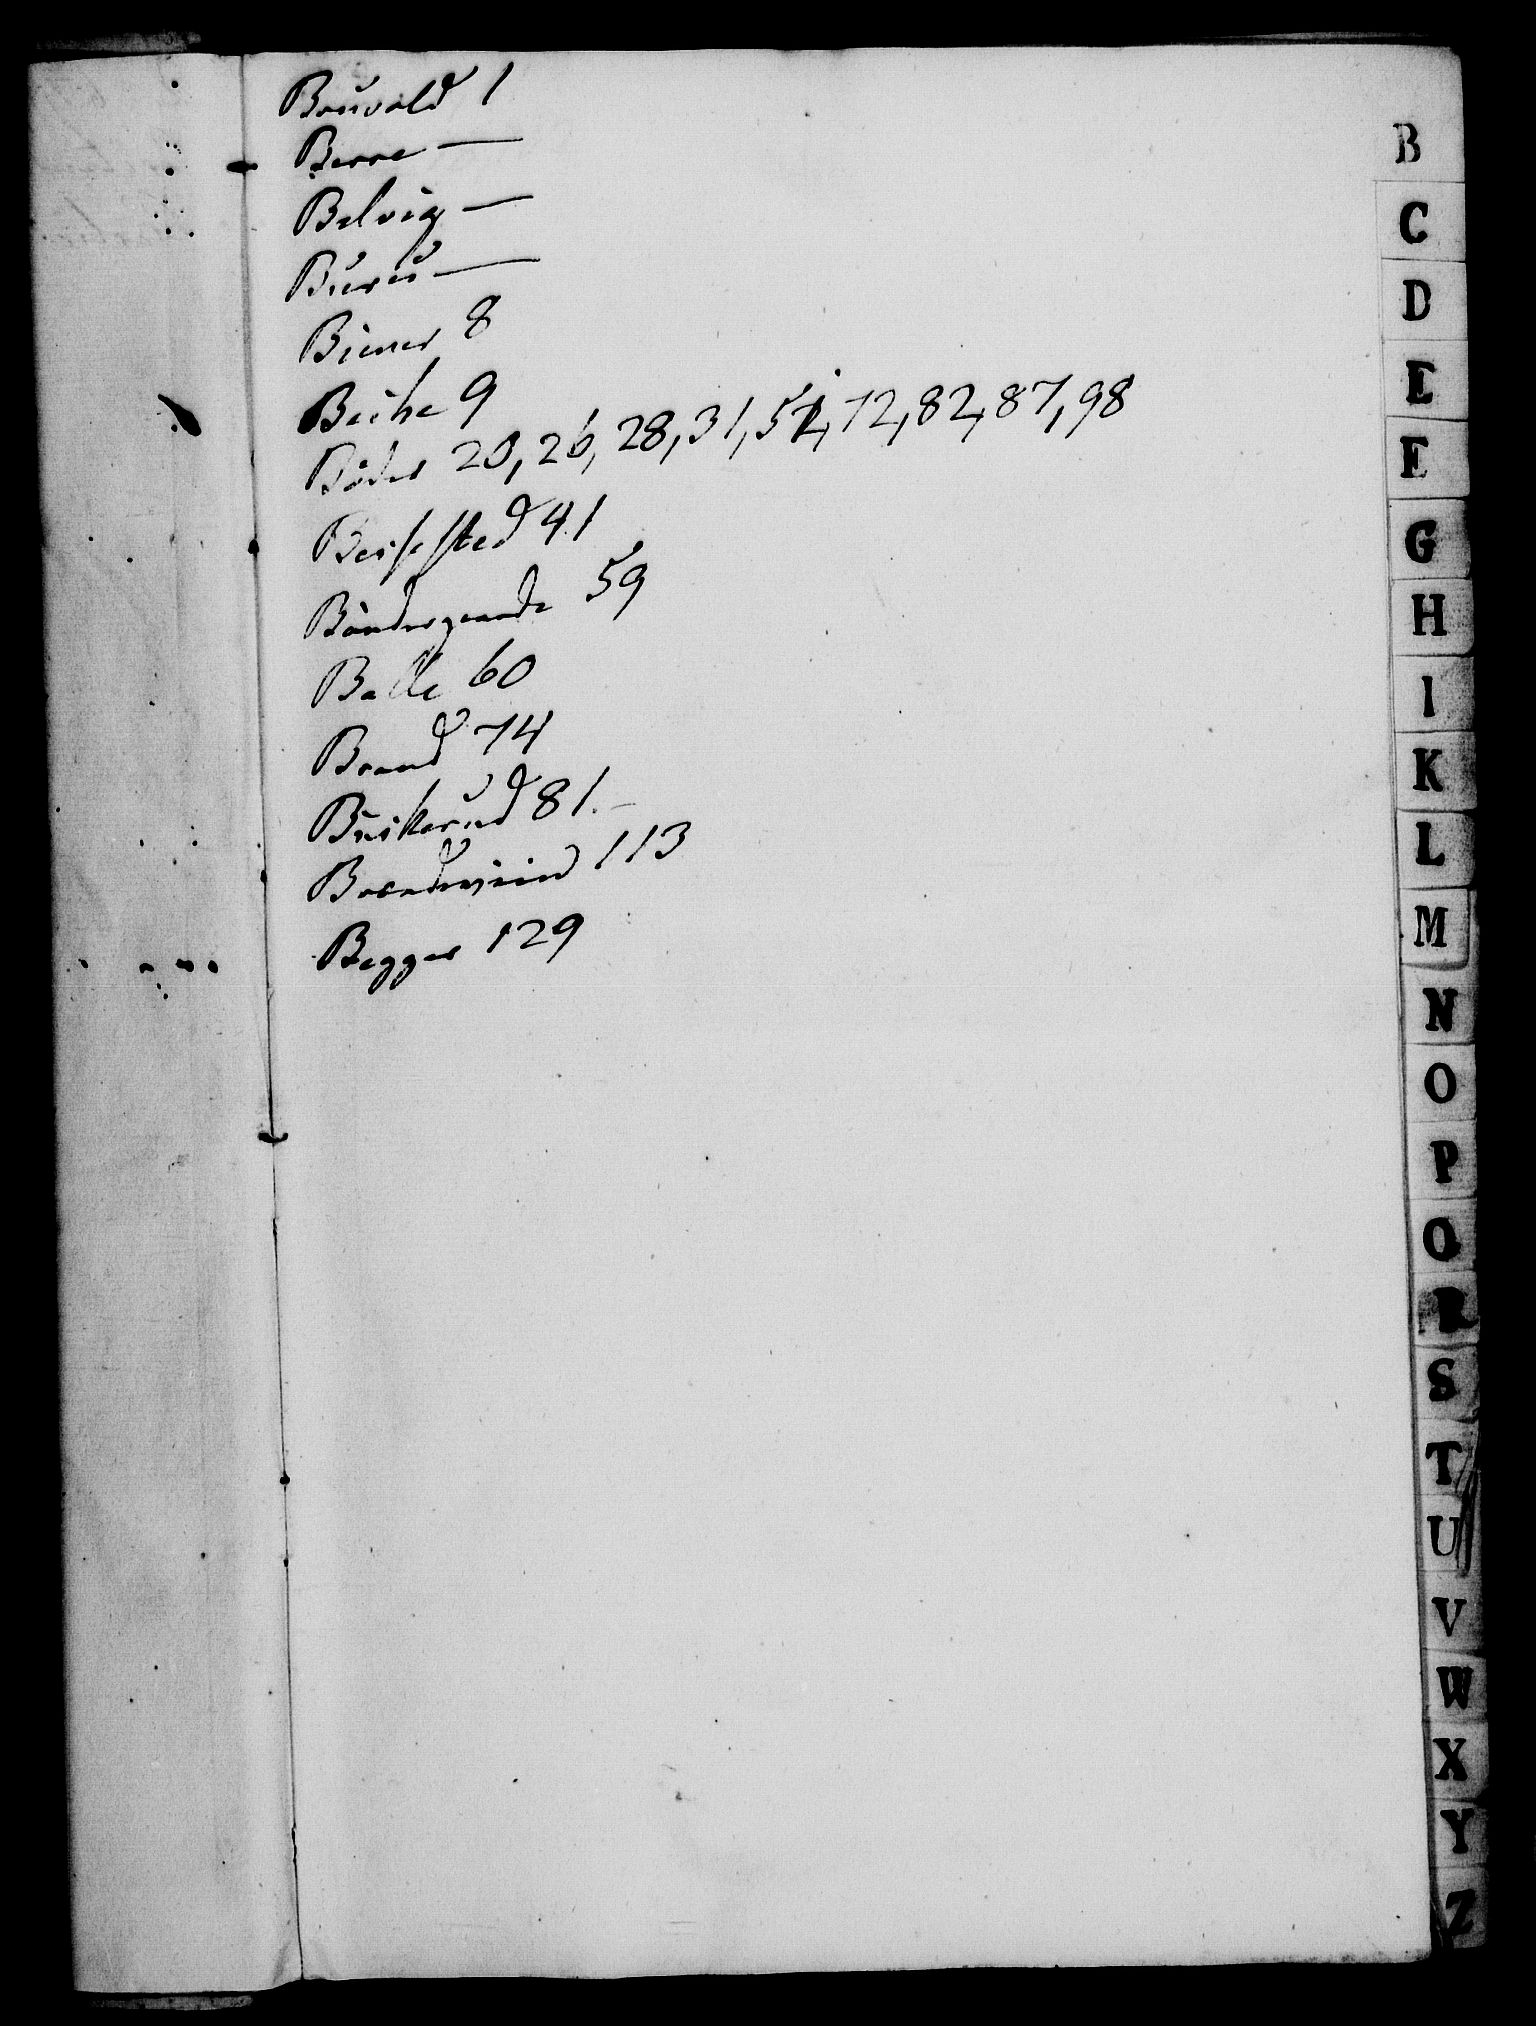 Bruvold 1
Berre —
Belvig —
Bureu —
Biener 8
Beihe 9
Bøder 20, 26, 28, 31, 52, 72, 82, 87, 98
Beissted 41
Bøndergaarde 59
Balle 60
Brand 74
Buskerud 81.
Brændeviin 113
Begger 129
B
C
D
E
F
G
H
I
K
L
M
N
O
P
Q
R
S
T
U
V
W
X
Y
Z